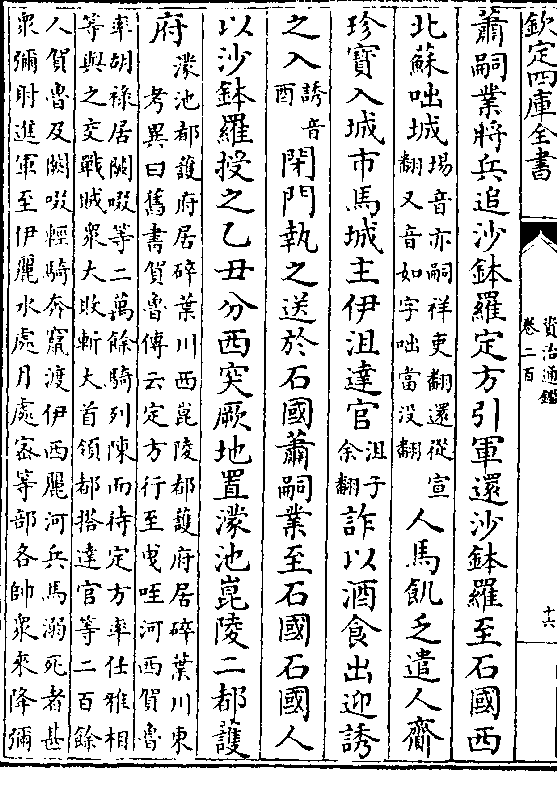 欽定四庫全書
資治通鑑
卷二百
十六
蕭嗣業將兵追沙鉢羅定方引軍還沙鉢羅至石國西
北蘇咄城埸音亦嗣祥吏翻還從宣
翻又音如字咄當没翻人馬飢乏遣人齎
珍寶入城市馬城主伊沮達官沮子
余翻詐以酒食出迎誘
之入誘音
酉閉門執之送於石國蕭嗣業至石國石國人
以沙鉢羅授之乙丑分西突厥地置濛池崑陵二都護
府濛池都護府居碎葉川西崑陵都護府居碎葉川東
考異曰舊書賀魯傳云定方行至曳咥河西賀魯
率胡祿居闕啜等二萬餘騎列陳而待定方率任雅相
等與之交戰賊衆大敗斬大首領都搭達官等二百餘
人賀魯及闕啜輕騎奔竄渡伊西麗河兵馬溺死者甚
衆彌射進軍至伊麗水處月處宻等部各帥衆來降彌